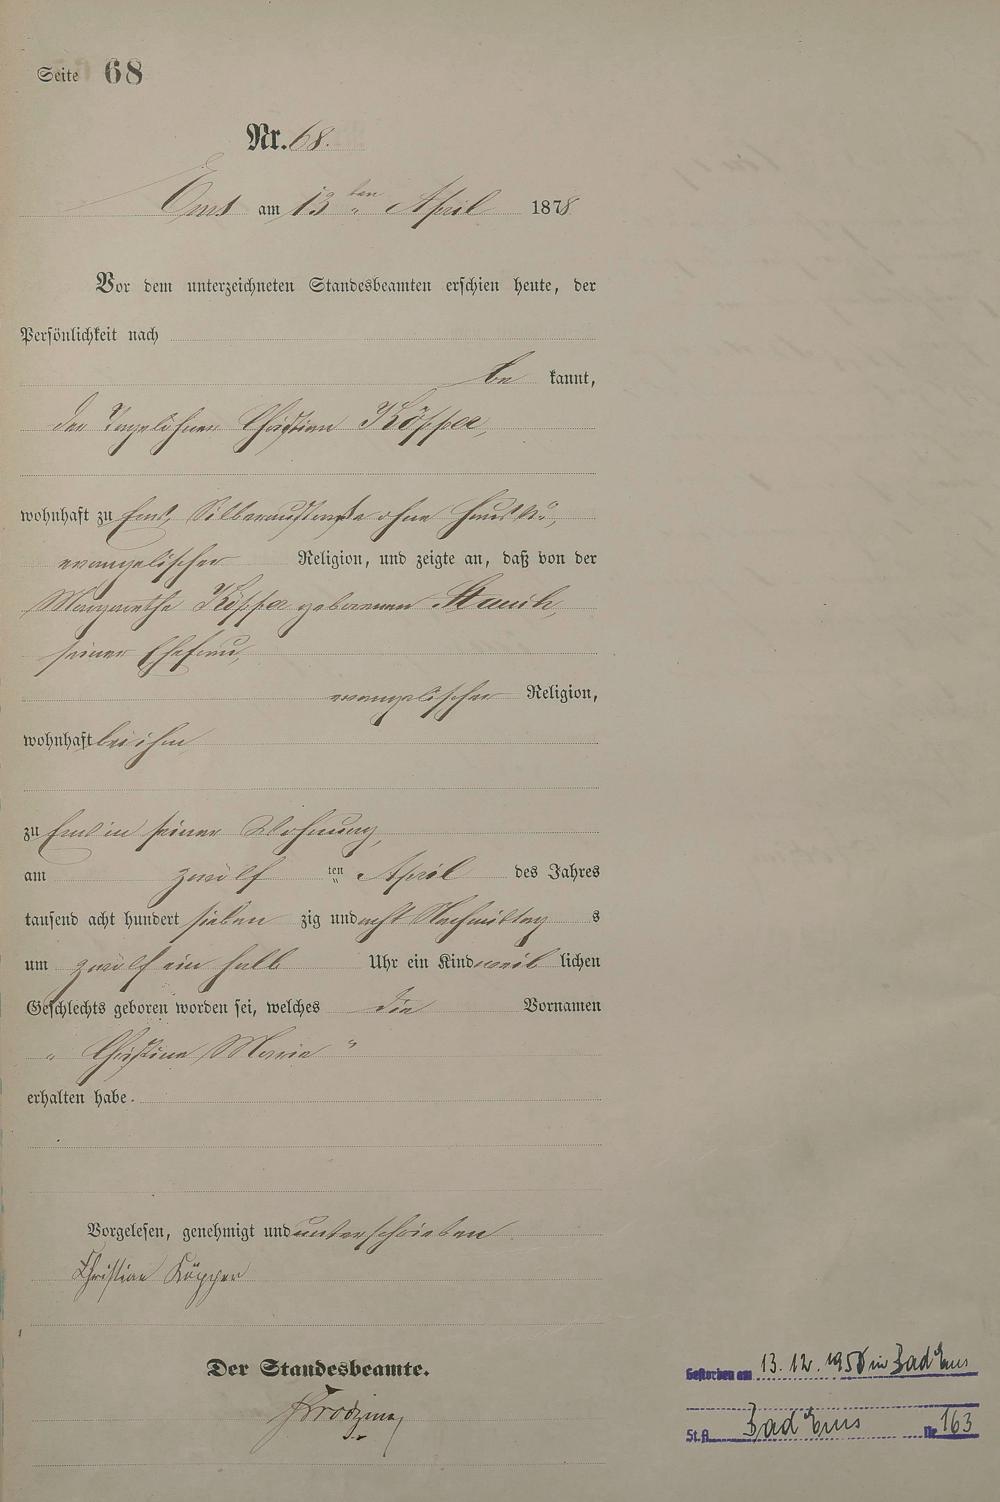 Seite 68
Nr. 68.
Ems am 13 ten April 1878
Vor dem unterzeichneten Standesbeamten erschien heute, der
Persönlichkeit nach
be kannt,
der Tagelöhner Christian Köpper,
wohnhaft zu Ems, Silberaustraße ohne Haus No,
evangelischer Religion, und zeigte an, daß von der
Margarethe Köpper geborenen Stauch,
seiner Ehefrau,
evangelischer Religion,
wohnhaft bei ihm,
zu Ems in seiner Wohnung,
am zwölf ten April des Jahres
tausend acht hundert sieben zig und acht Nachmittag s
um zwölf ein halb Uhr ein Kind weib lichen
Geschlechts geboren worden sei, welches die Vornamen
„ Christina Marie “
erhalten habe.
Vorgelesen, genehmigt und unterschrieben
Christian Köpper
Der Standesbeamte.
Gestorben am 13.12.1958 in Bad Ems
St.A. Bad Ems Nr. 163